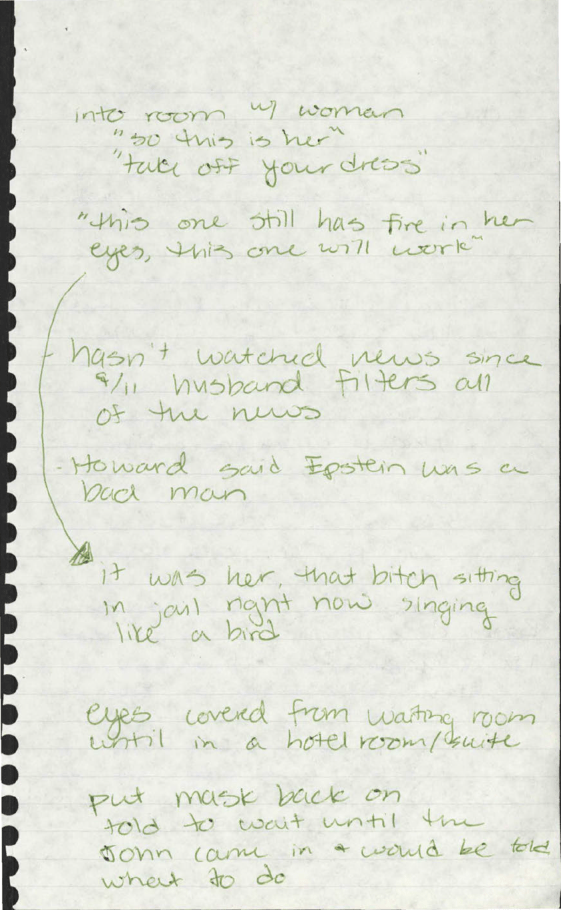 into room w/ woman
"so this is her"
"take off your dress"
"this one still has fire in her
eyes, this one will work"
- hasn't watched news since
9/11 husband filters all
of the news
- Howard said Epstein was a
bad man
it was her, that bitch sitting
in jail right now singing
like a bird
eyes covered from waiting room
until in a hotel room/suite
put mask back on
told to wait until the
John came in + would be told
what to do